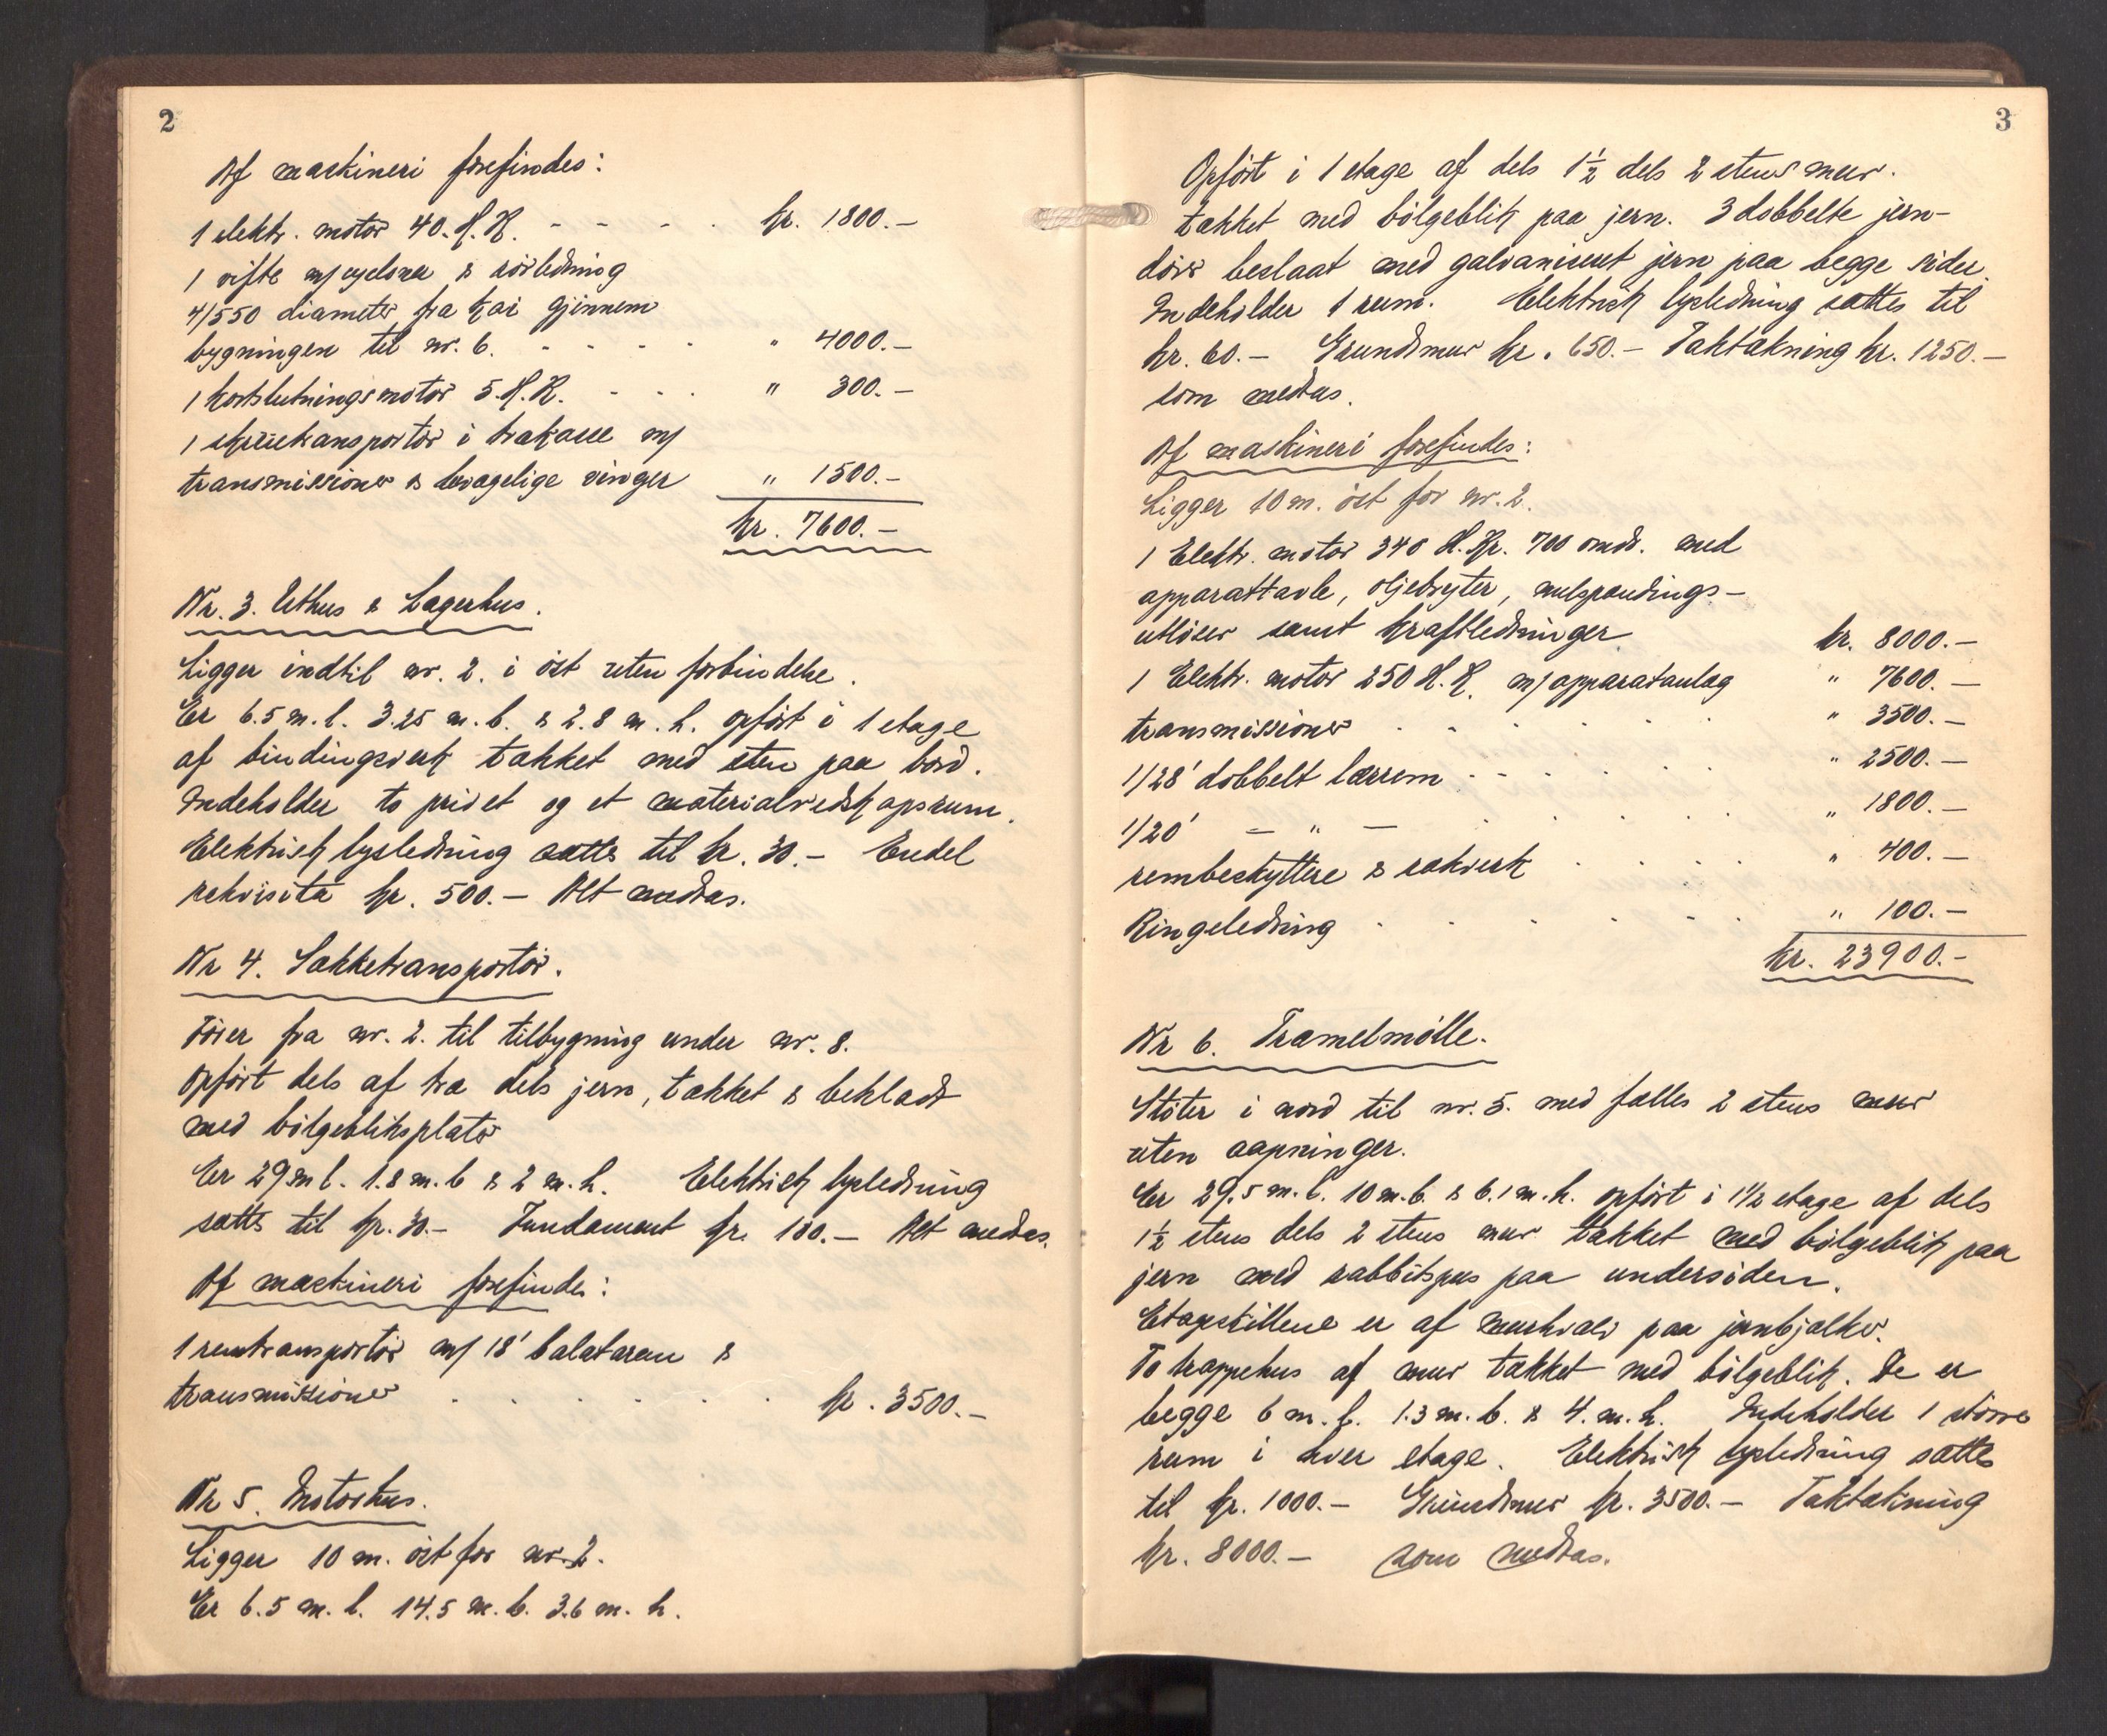 2
Af maskineri forefindes:
1 elektr. motor 40. H.K. - - - . kr. 1800.-
1 vifte m/ cyclone & rörledning
4/550 diameter fra kar gjennem
bygningen til nr. 6. - - - - " 4000.-
1 kortslutningsmotor 5. H.K. - - . " 300.-
1 skruetransportör i trækasse m/
transmissioner & bevægelige vinger " 1500.-
kr. 7600.-
Nr. 3. Uthus & Lagerhus.
Ligger indtil nr. 2. i öst uten forbindelse.
Er 6.5 m. l. 3.25 m. b. & 2.8 m. h. opfört i 1 etage
af bindingsverk tækket med sten paa bord.
Indeholder to privet og et materialredskapsrum.
Elektrisk lysledning sættes til kr. 30.- Endel
rekvisita kr. 500.- Alt medtas.
Nr 4. Sækketransportör.
Förer fra nr. 2. til tilbygning under nr. 8.
Opfört dels af træ dels jern, tækket & beklædt
med bölgebliksplater
Er 29. m l. 1.8 m. b & 2 m. h. Elektrisk lysledning
sættes til kr. 30.- Fundament kr. 100.- Alt medtas.
Af maskineri forefindes:
1 remtransportör m/ 18' balatarem &
transmissioner . . . . . . kr. 3500.-
Nr 5. Motorhus.
Ligger 10 m. öst for nr. 2.
Er 6.5 m. l. 14.5 m. b. 3.6 m. h.
3
Opfört i 1 etage af dels 1½ dels 2 stens mur.
tækket med bölgeblik paa jern. 3 dobbelte jern-
dörer beslaat med galvaniseret jern paa begge sider.
Indeholder 1 rum. Elektrisk lysledning sættes til
kr. 60.- Grundmur kr. 650.- Taktækning kr. 1250.-
som medtas.
Af maskineri forefindes:
Ligger 10 m. öst for nr. 2.
1 Elektr. motor 340 H.Kr. 700 omdr. med
apparattavle, oljebryter, nulspændings-
utlöser samt kraftledninger kr. 8000.-
1 Elektr. motor 250 H.K. m/ apparatanlæg " 7600.-
transmissioner . . . . . . " 3500.-
1/28' dobbelt lærrem - - . . . . " 2500.-
1/20' — " — . . . . . " 1800.-
rembeskyttere & rækverk . . . . " 400.-
Ringeledning . . . . . . " 100.-
kr. 23900.-
Nr 6. Tramelmölle.
Stöter i nord til nr. 5. med fælles 2 stens mur
uten aapninger.
Er 29.5 m. l. 10 m. b. & 6.1 m. h. opfört i 1½ etage af dels
1½ stens dels 2 stens mur tækket med bölgeblik paa
jern med rabbitspus paa undersiden.
Etageskillene er af murhvælv paa jernbjælker.
To trappehus af mur tækket med bölgeblik. De er
begge 6 m. l. 1.3 m. b. & 4. m. h. Indeholder 1 större
rum i hver etage. Elektrisk lysledning sættes
til kr. 1000.- Grundmur kr. 3500.- Taktækning
kr. 8000.- som medtas.